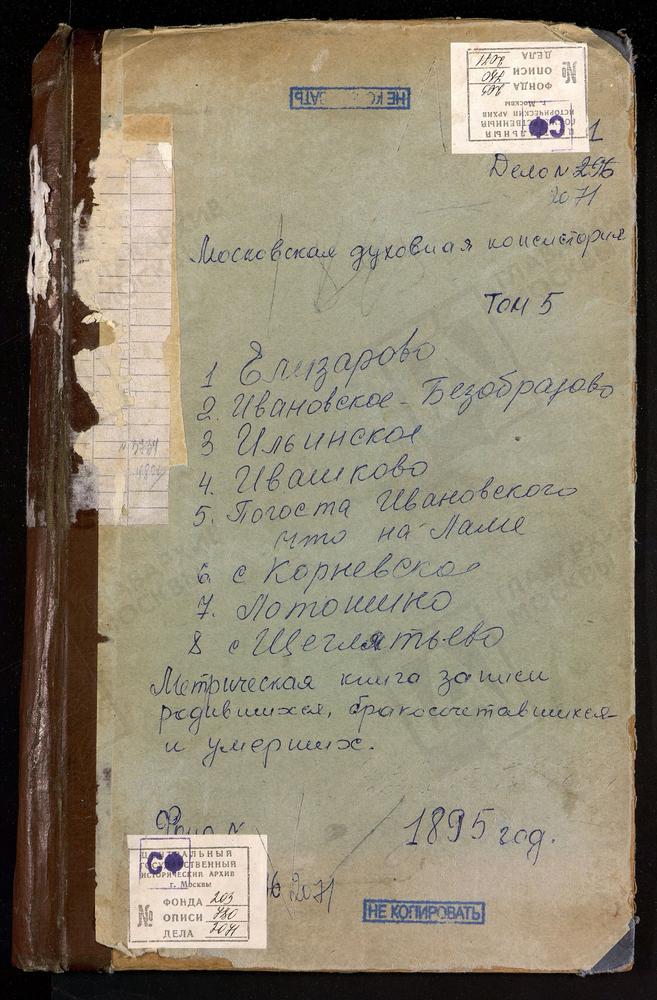 НЕ КО ОВАТЬ
ДЕЛА 2071
№ ОПИСИ 780
ФОНДА 203
г. Москвы
ИСТОРИЧЕСКИЙ АРХИВ
СФ 1
Дело № 296
2071
Московская духовная консистория
Том 5
1 Елизарово
2. Ивановское - Безобразово
3 Ильинское
4. Ивашково
5. Погоста Ивановского
что на Ламе
6 с Корневское
7. Лотошино
8 с Щеглятьево
Метрическая книга записи
родившихся, бракосочетавшихся
и умерших.
1895 год.
Фонд №
2071
СФ
ЦЕНТРАЛЬНЫЙ
ГОСУДАРСТВЕННЫЙ
ИСТОРИЧЕСКИЙ АРХИВ
г. Москвы
ФОНДА 203
№ ОПИСИ 780
ДЕЛА 2071
НЕ КОПИРОВАТЬ